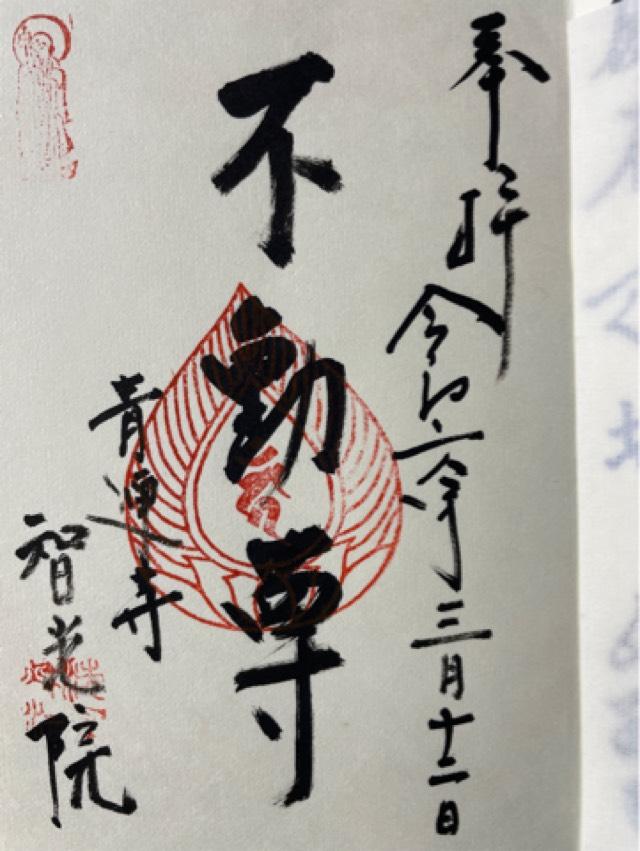 奉拝
令和二年三月十二日
不動尊
青蓮寺
智光院